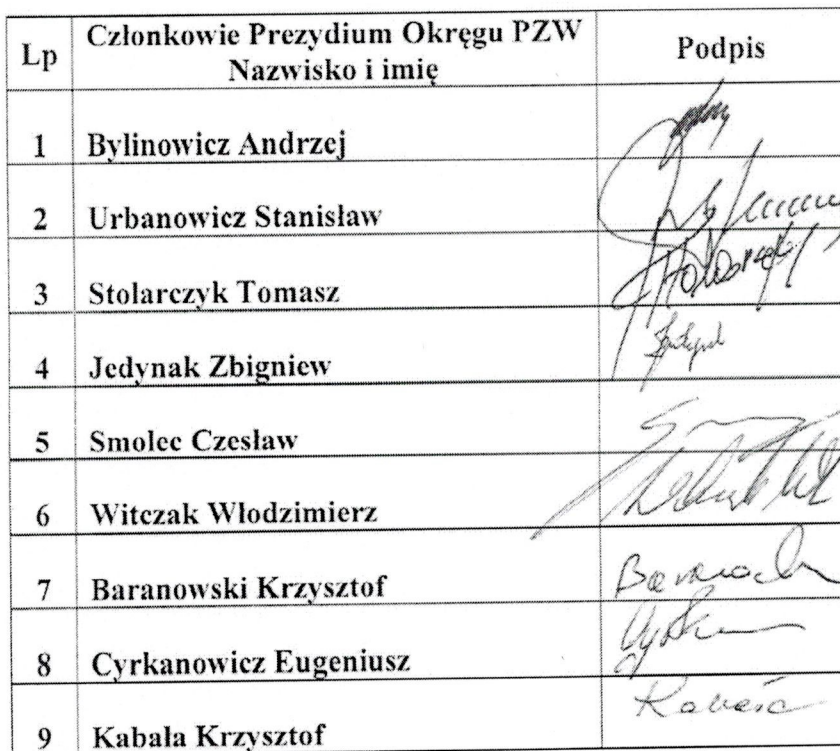 Lp Członkowie Prezydium Okręgu PZW
Nazwisko i imię Podpis
1 Bylinowicz Andrzej
2 Urbanowicz Stanisław
3 Stolarczyk Tomasz
4 Jedynak Zbigniew
5 Smolec Czesław
6 Witczak Włodzimierz
7 Baranowski Krzysztof
8 Cyrkanowicz Eugeniusz
9 Kabała Krzysztof